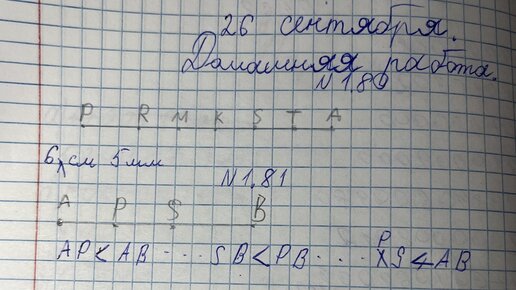 26 сентября.
Домашняя работа.
N 1.80
P R M K S T A
6 см 5 мм
N 1.81
A P S B
AP < AB ... SB < PB ... PS < AB